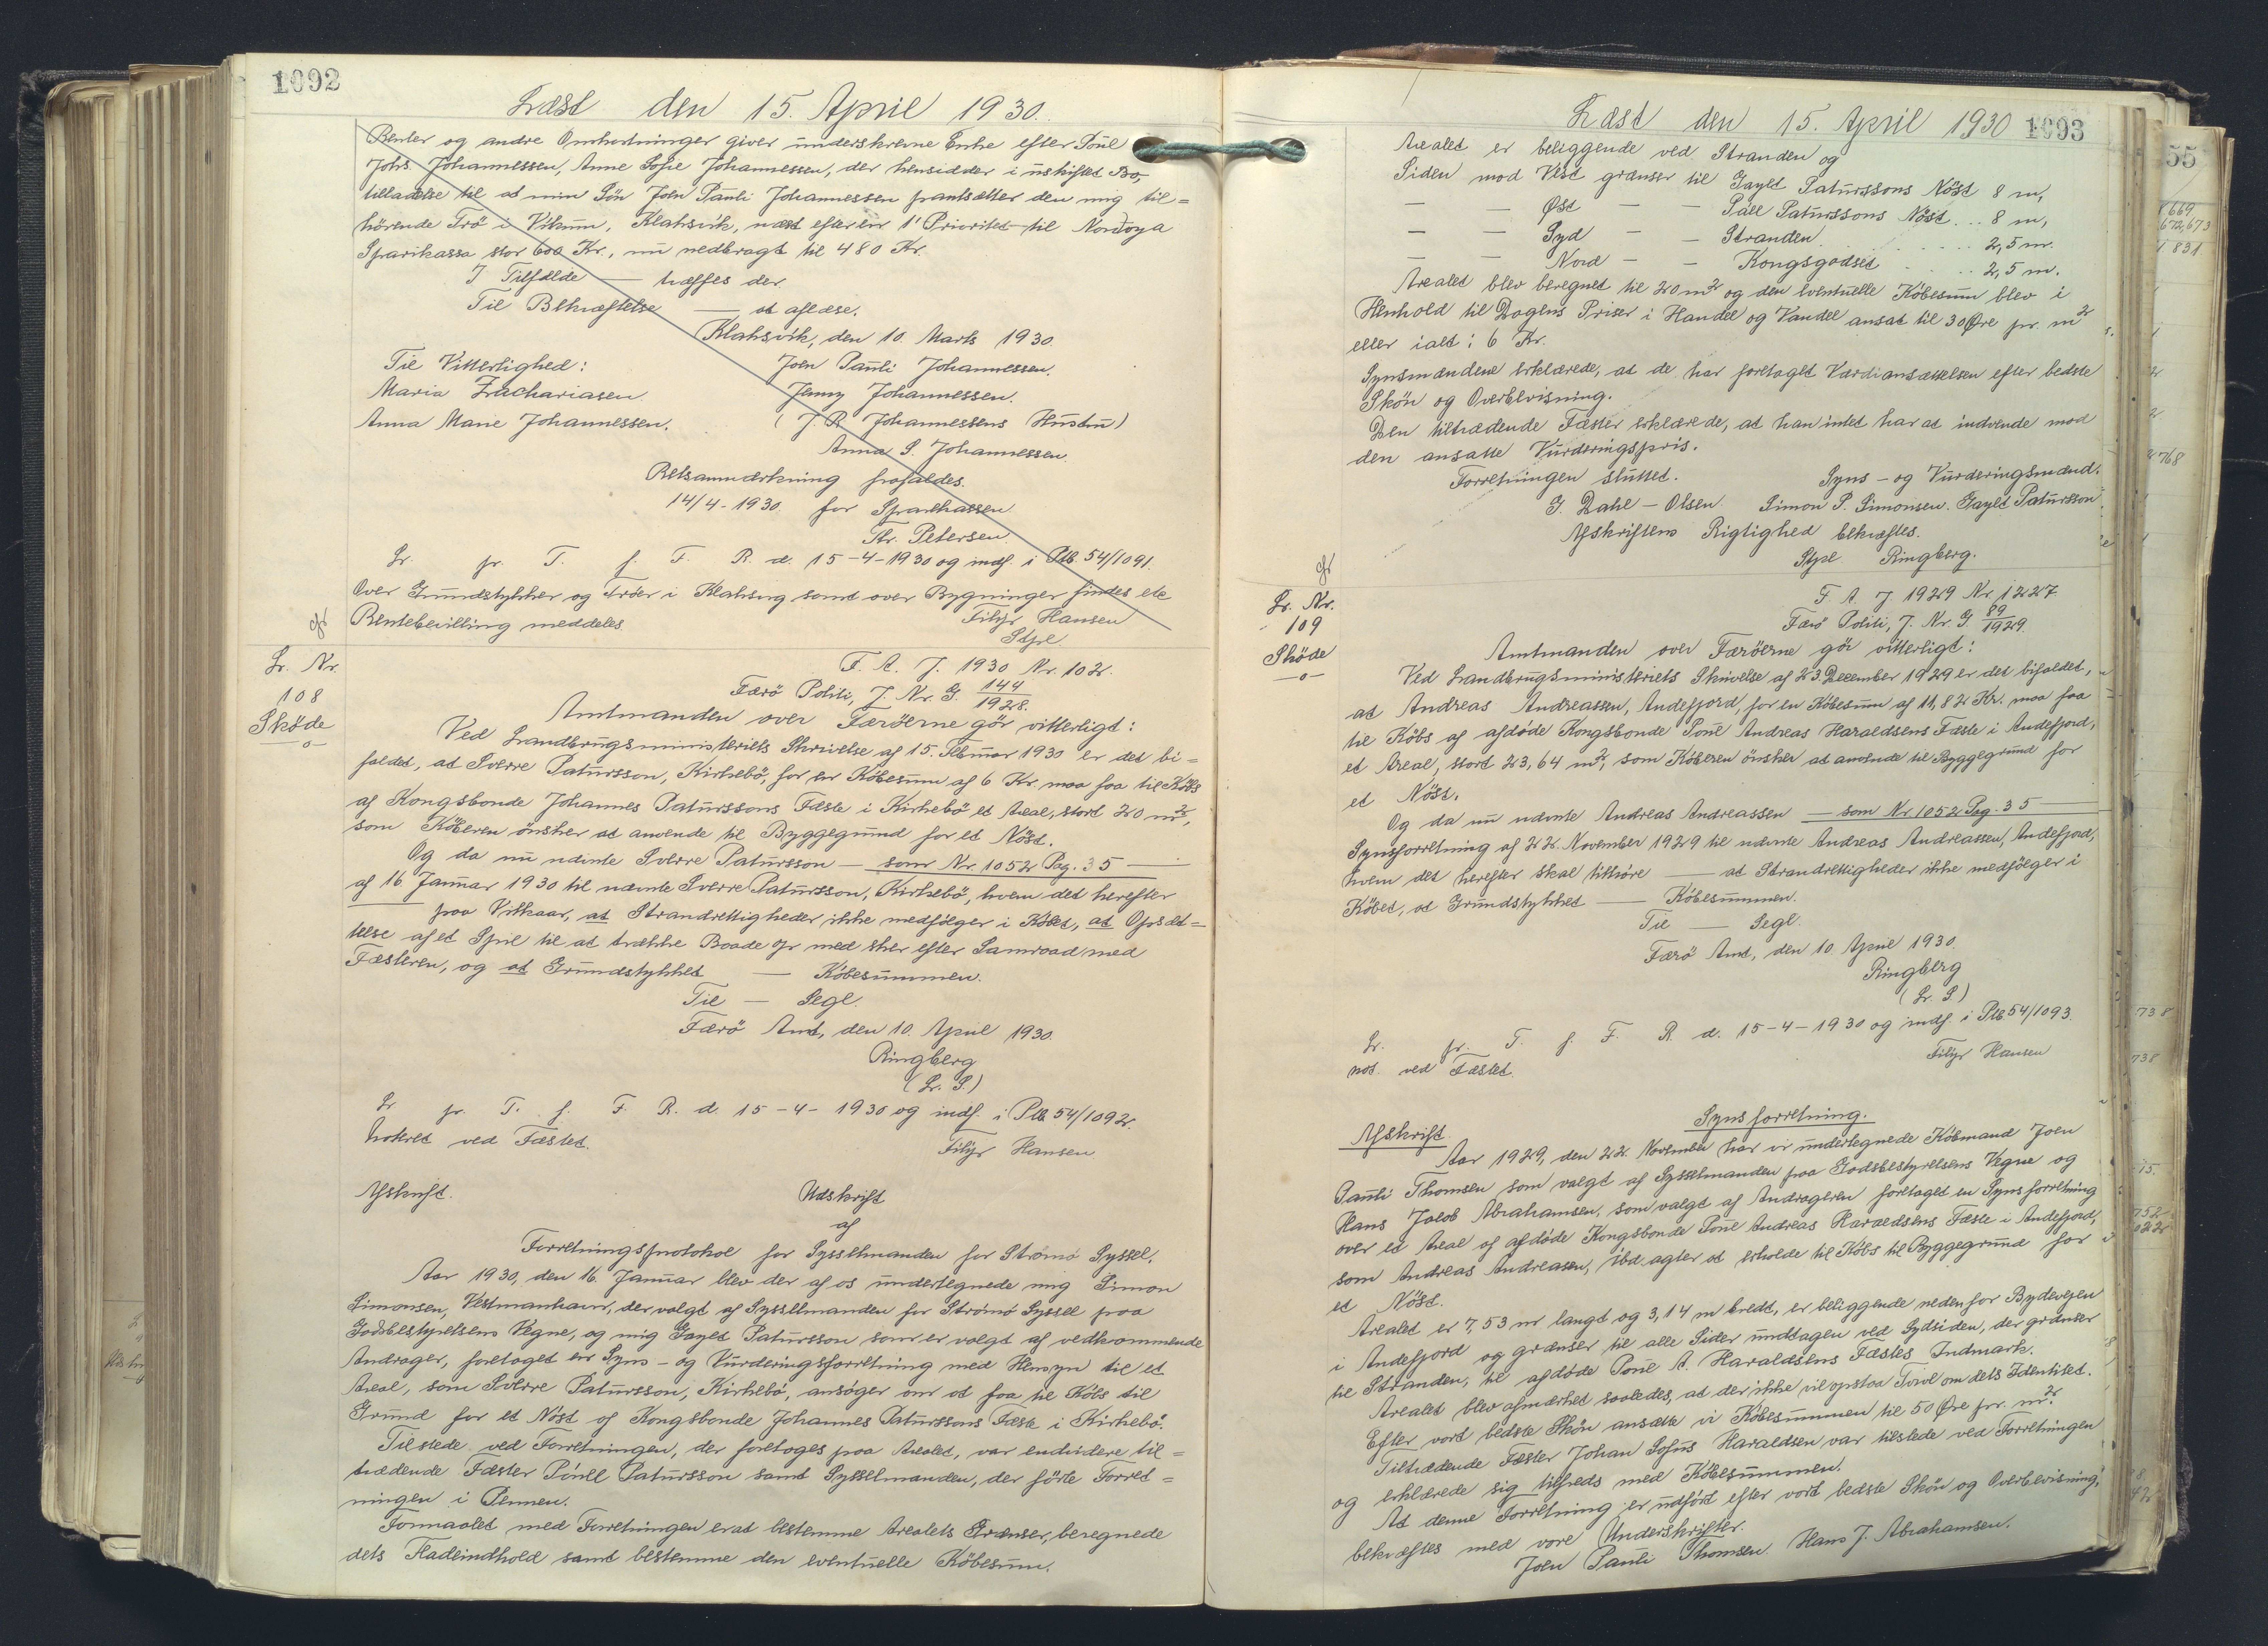 1092
Læst den 15. April 1930.
Renter og andre Omkostninger giver underskrevne Enke efter Poul
Johs. Johannessen, Anne Sofie Johannessen, der hensidder i uskiftet Bo,
tilladelse til at min Sön Joen Pauli Johannessen pantsætter den mig til=
hörende Trö i Vikum, Klaksvik, næst efter en 1' Prioritet til Nordoya
Sparikassa stor 600 Kr., nu nedbragt til 480 Kr.
I Tilfælde — træffes der.
Til Bekræftelse — at aflæse.
Klaksvik, den 10. Marts 1930.
Til Vitterlighed: Joen Pauli Johannessen.
Maria Zachariasen Jenny Johannessen.
Anna Marie Johannessen. (J. P. Johannessens Hustru)
Anna S. Johannessen.
Retsanmærkning frafaldes.
14/4-1930. for Sparekassen
Thr. Petersen.
Lr. pr. T. f. F. R. d. 15-4-1930 og indf. i Ptb. 54/1091.
Over Grundstykker og Tröer i Klaksvig samt over Bygninger findes ele
Rentebevilling meddeles Filip Hansen
Stpl.
Lr. Nr.
108
Sköde
F. A. J. 1930 Nr. 102.
Færö Politi, J. Nr. G. 144/1928.
Amtmanden over Færöerne gör vitterligt:
Ved Landbrugsministeriets Skrivelse af 15. Februar 1930 er det bi=
faldet, at Sverre Patursson, Kirkebö, for en Köbesum af 6 Kr. maa faa til Köbs
af Kongsbonde Johannes Paturssons Fæste i Kirkebö et Areal, stort 20 m²,
som Köberen önsker at anvende til Byggegrund for et Nöst.
Og da nu ndvnte Sverre Patursson — som Nr. 1052 Pag. 35 —
af 16. Januar 1930 til nævnte Sverre Patursson, Kirkebö, hvem det herefter
paa Vilkaar, at Strandrettigheder ikke medfölger i Köbet, at Opsæt=
telse af et Spil til at trække Baade op med sker efter Samraad med
Fæsteren, og at Grundstykket — Köbesummen.
Til — Segl.
Færö Amt, den 10. April 1930.
Ringberg
(L. S.)
Lr. pr. T. f. F. R. d. 15-4-1930 og indf. i Ptb. 54/1092.
Noteret ved Fæstet. Filip Hansen
Afskrift. Udskrift
af
Forretningsprotokol for Sysselmanden for Strömö Syssel.
Aar 1930, den 16. Januar blev der af os undertegnede mig Simon
Simonsen, Vestmanhavn, der valgt af Sysselmanden for Strömö Syssel paa
Godsbestyrelsens Vegne, og mig Gayld Patursson som er valgt af vedkommende
Andrager, foretaget en Syns- og Vurderingsforretning med Hensyn til et
Areal, som Sverre Patursson, Kirkebö, ansöger om at faa til Köbs til
Grund for et Nöst af Kongsbonde Johannes Paturssons Fæste i Kirkebö.
Tilstede ved Forretningen, der foretoges paa Arealet, var endvidere til=
trædende Fæster Póull Patursson samt Sysselmanden, der förte Forret=
ningen i Pennen.
Formaalet med Forretningen er at bestemme Arealets Grænser, beregnede
dets Fladeindhold samt bestemme den eventuelle Köbesum.
1093
Læst den 15. April 1930
Arealet er beliggende ved Stranden og
Siden mod Vest grænser til Gayld Paturssons Nöst 8 m,
— — Øst — — Páll Paturssons Nöst .. 8 m,
— — Syd — — Stranden . . . . 2,5 m.
— — Nord — — Kongsgodset . . . 2,5 m.
Arealet blev beregnet til 20 m² og den eventuelle Köbesum blev i
Henhold til Dagens Priser i Handel og Vandel ansat til 30 Øre pr. m²
eller ialt: 6 Kr.
Synsmændene erklærede, at de har foretaget Værdiansættelsen efter bedste
Skön og Overbevisning.
Den tiltrædende Fæster erklærede, at han intet har at indvende mod
den ansatte Vurderingspris.
Forretningen sluttet. Syns- og Vurderingsmænd:
J. Dahl-Olsen Simon P. Simonsen. Gayld Patursson
Afskriftens Rigtighed bekræftes.
Stpl. Ringberg.
Lr. Nr.
109
Sköde
F. A. J 1929 Nr. 1227.
Færö Politi, J. Nr. G. 89/1929.
Amtmanden over Færöerne gör vitterligt:
Ved Landbrugsministeriets Skrivelse af 23. December 1929 er det bifaldet,
at Andreas Andreassen, Andefjord, for en Köbesum af 11,82 Kr. maa faa
til Köbs af afdöde Kongsbonde Poul Andreas Haraldsens Fæste i Andefjord,
et Areal, stort 23,64 m², som Köberen önsker at anvende til Byggegrund for
et Nöst.
Og da nu ndvnte Andreas Andreassen — som Nr. 1052 Pag. 35 —
Synsforretning af 22. November 1929 til ndvnte Andreas Andreassen, Andefjord,
hvem det herefter skal tilhöre — at Strandrettigheder ikke medfölger i
Köbet, at Grundstykket — Köbesummen.
Til — Segl.
Færö Amt, den 10. April 1930.
Ringberg
(L. S.)
Lr. pr. T. f. F. R. d. 15-4-1930 og indf. i Ptb 54/1093.
not. ved Fæstet. Filip Hansen
Afskrift. Synsforretning.
Aar 1929, den 22. November har vi undertegnede Köbmand Joen
Pauli Thomsen som valgt af Sysselmanden paa Godsbestyrelsens Vegne og
Hans Jacob Abrahamsen, som valgt af Andrageren foretaget en Synsforretning
over et Areal af afdöde Kongsbonde Poul Andreas Haraldsens Fæste i Andefjord,
som Andreas Andreasen, ibd. agter at erholde til Köbs til Byggegrund for
et Nöst.
Arealet er 7,53 m langt og 3,14 m bredt, er beliggende nedenfor Bydevejen
i Andefjord og grænser til alle Sider undtagen ved Sydsiden, der grænser
til Stranden, til afdöde Poul A. Haraldsens Fæstes Indmark.
Arealet blev afmærket saaledes, at der ikke vil opstaa Tvivl om dets Identitet.
Efter vort bedste Skön ansætte vi Köbesummen til 50 Øre pr. m².
Tiltrædende Fæster Johan Sofus Haraldsen var tilstede ved Forretningen
og erklærede sig tilfreds med Köbesummen.
At denne Forretning er udfört efter vort bedste Skön og Overbevisning,
bekræftes med vore Underskrifter.
Joen Pauli Thomsen. Hans J. Abrahamsen.
55